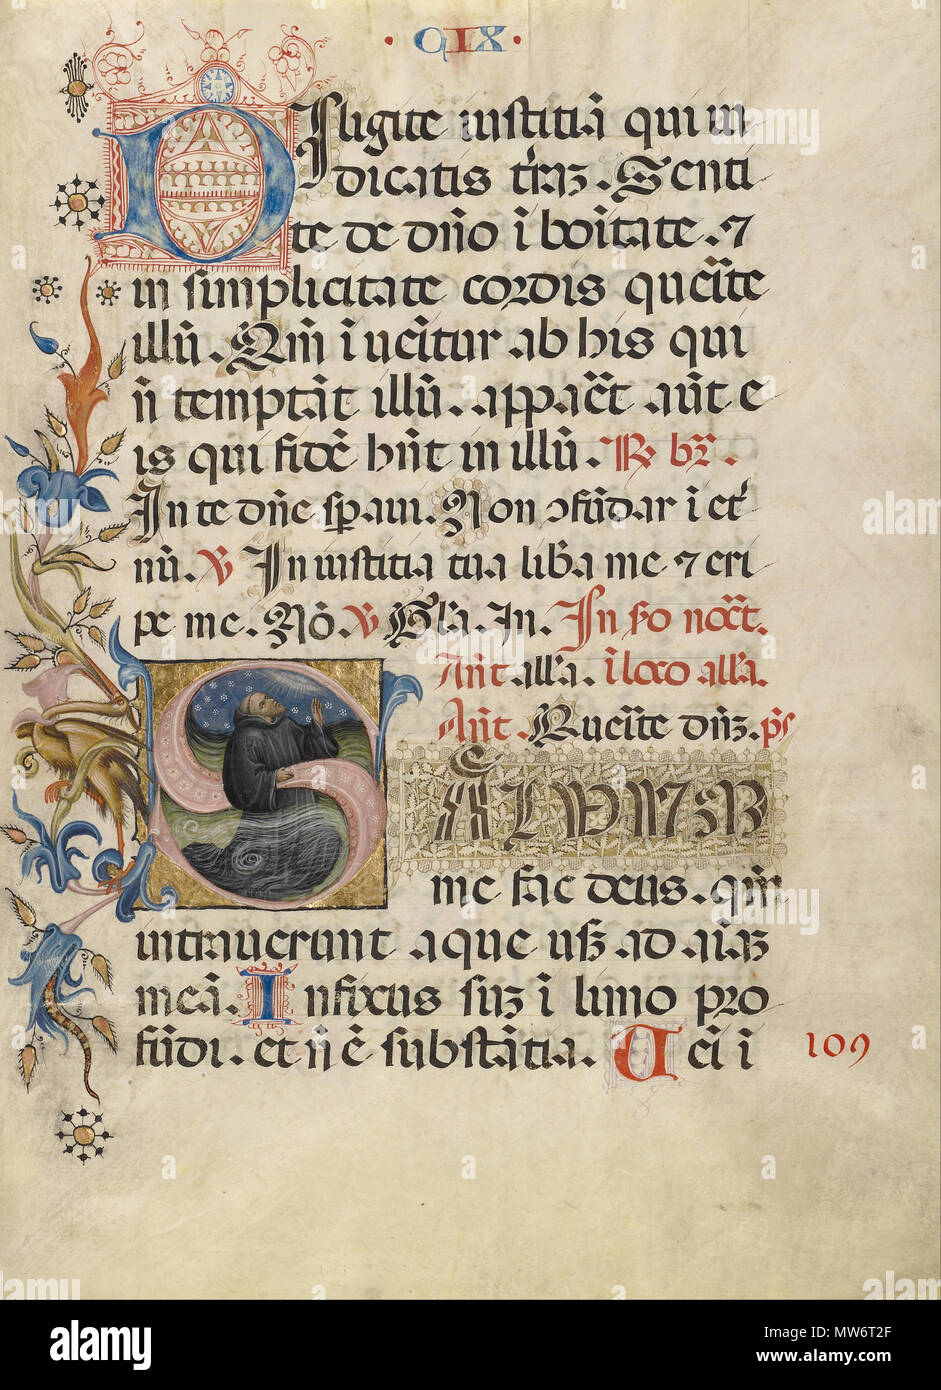 · CIX ·
Diligite iustitiā qui iu
dicatis t'rā₃. Senti
te de dn̄o ī boītate. ⁊
in simplicitate cordis querite
illū. Qm̄ īuēitur ab his qui
n̄ temptāt illū. apparet aūt e
is qui fidē hn̄t in illū. R̷ br̄.
In te dn̄e spaui. Non ↄfūdar ī et'
nū. V̷ In iustitia tua lib'a me ⁊ eri
pe me. Nō. V̷ Gl'a. In. In fo noct.
Ant. all'a. ī loco all'a.
Ant. Aucīte dn̄₃. ps
SALVUM
me fac deus. qm̄
intrauerunt aque usq₃ ad aīa₃
meā. Infixus su₃ ī limo pro
fūdi. et n̄ ē substātia. Ueī ī
109
alamy
Image ID: MW6T2F
www.alamy.com